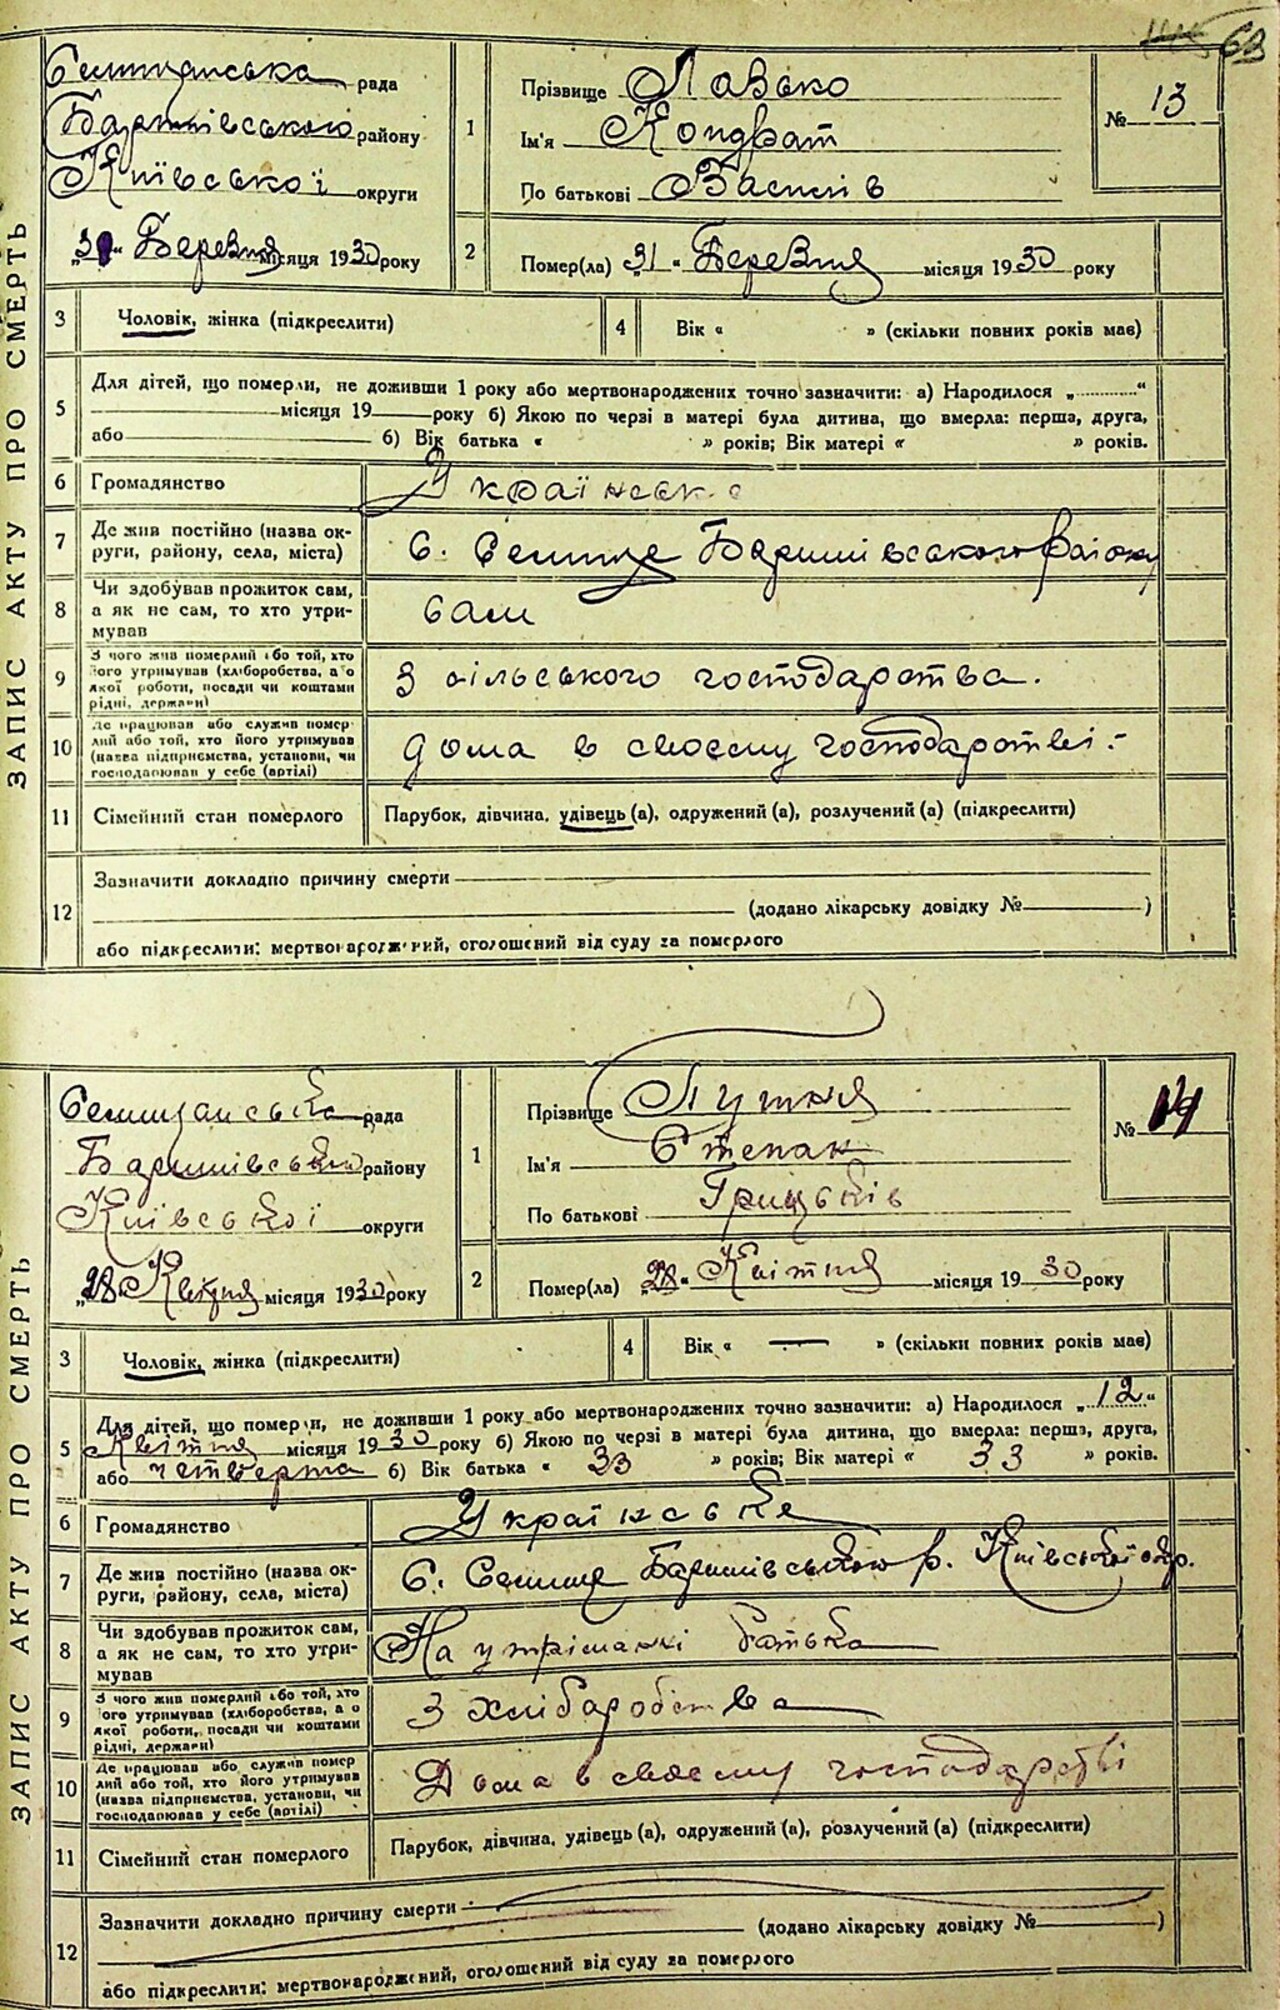 63
ЗАПИС АКТУ ПРО СМЕРТЬ
Селищанська рада
Баришівського району
Київської округи
„31“ Березня місяця 1930 року
1
Прізвище Лавсько
Ім'я Кондрат
По батькові Василів
№ 13
2
Помер(ла) „31“ Березня місяця 1930 року
3
Чоловік, жінка (підкреслити)
4
Вік « » (скільки повних років має)
5
Для дітей, що померли, не доживши 1 року або мертвонароджених точно зазначити: а) Народилося „ “
місяця 19 року б) Якою по черзі в матері була дитина, що вмерла: перша, друга,
або б) Вік батька « » років; Вік матері « » років.
6
Громадянство
Українське
7
Де жив постійно (назва ок-
руги, району, села, міста)
С. Селище Баришівського району
8
Чи здобував прожиток сам,
а як не сам, то хто утри-
мував
сам
9
З чого жив померлий або той, хто
його утримував (хліборобства, а о
якої роботи, посади чи коштами
рідні, держави)
З сільського господарства.
10
Де працював або служив помер
лий або той, хто його утримував
(назва підприємства, установи, чи
господарював у себе (артілі)
дома в своєму господарстві.-
11
Сімейний стан померлого
Парубок, дівчина, удівець (а), одружений (а), розлучений (а) (підкреслити)
12
Зазначити докладно причину смерти
(додано лікарську довідку № )
або підкреслити: мертвонароджений, оголошений від суду за померлого
ЗАПИС АКТУ ПРО СМЕРТЬ
Селищанська рада
Баришівського району
Київської округи
„28“ Квітня місяця 1930 року
1
Прізвище Путня
Ім'я Степан
По батькові Грицьків
№ 14
2
Помер(ла) „28“ Квітня місяця 1930 року
3
Чоловік, жінка (підкреслити)
4
Вік « — » (скільки повних років має)
5
Для дітей, що померли, не доживши 1 року або мертвонароджених точно зазначити: а) Народилося „12“
Квітня місяця 1930 року б) Якою по черзі в матері була дитина, що вмерла: перша, друга,
або четверта б) Вік батька « 33 » років; Вік матері « 33 » років.
6
Громадянство
Українське
7
Де жив постійно (назва ок-
руги, району, села, міста)
С. Селище Баришівського р. Київської окр.
8
Чи здобував прожиток сам,
а як не сам, то хто утри-
мував
На утріманкі батька
9
З чого жив померлий або той, хто
ого утримував (хліборобства, а о
якої роботи, посади чи коштами
рідні, держави)
З хлібаробства
10
Де працював або служив помер
лий або той, хто його утримував
(назва підприємства, установи, чи
господарював у себе (артілі)
Дома в своєму господарстві
11
Сімейний стан померлого
Парубок, дівчина, удівець (а), одружений (а), розлучений (а) (підкреслити)
12
Зазначити докладно причину смерти
(додано лікарську довідку № )
або підкреслити: мертвонароджений, оголошений від суду за померлого